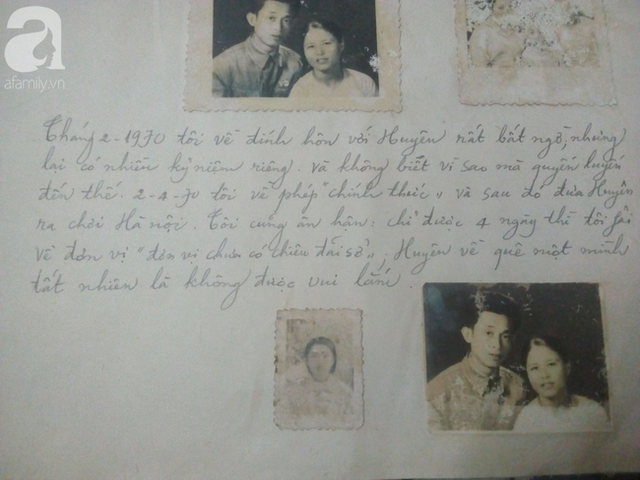 a
afamily.vn
Tháng 2-1970 tôi về đính hôn với Huyên rất bất ngờ, nhưng
lại có nhiều kỷ niệm riêng. Và không biết vì sao mà quyến luyến
đến thế. 2-4-70 tôi về phép "chính thức" và sau đó đưa Huyên
ra chơi Hà Nội. Tôi cũng ân hận: chỉ được 4 ngày thì tôi phải
về đơn vị "đơn vị chưa có chiêu đãi sở", Huyên về quê một mình
tất nhiên là không được vui lắm.